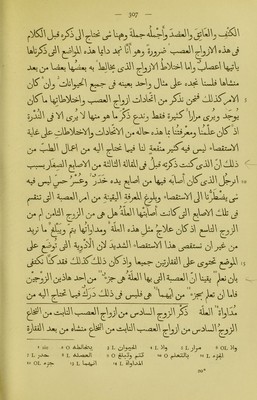 — 307 —
الكتف والعاتق والعضد وأجمله جملة وهينا شىء نحتاج الى ذكره قبل الكلام
فى هذه الازواج العصب ضرورة وهو أنّا نجد دائما هذه المواضع التى ذكرناها
يأتيها اعصاب واما اختلاط الازواج الذى يخالط به بعضها بعضا من بعد
منشاها فلسنا نجده على مثال واحد بعينه فى جميع الحيوانات وان كان
الامر كذلك فنحن نذكر من اتحادات ازواج العصب واختلاطاتها ما كان
يوجد ويرى مرارا كثيرة فقط وندع ذكر ما هو منها لا يرى الا فى الندرة
اذ كان علمنا ومعرفتنا بما هذه حاله من الاتحادات والاختلاطات على غاية
الاستقصاء ليس فيه كبير منفعة لنا فيما نحتاج اليه من اعمال الطب من
ذلك ان الذى كنت ذكرته قبل فى المقالة الثالثة من الاصابع الصغار بسبب
الرجل الذى كان أصابه فيها من اصابع يده خدر وعسر حس ليس فيه
شىء يضطرّنا الى الاستقصاء وبلوغ المعرفة اليقينة من امر العصبة التى تنقسم
فى تلك الاصابع التى كانت أصابتها العلة هل هى من الزوج الثامن ام من
الزوج التاسع اذ كان علاج مثل هذه العلة ومداواتها يتم ويبلغ ما نريد
من غير ان نستقصى هذا الاستقصاء الشديد لان الادوية التى توضع على
الموضع تحتوى على الفقارتين جميعا واذ كان ذلك كذلك فقد كنا نكتفى
بان نعلم يقينا ان العصبة التى بها العلة هى جزء من احد هاذين الزوجين
فاما ان نعلم بجزء من ايهما هى فليس فى ذلك درك فيما نحتاج اليه من
مداواة العلة ذكر الزوج السادس من ازواج العصب النابت من النخاع
الزوج السادس من ازواج العصب النابت من النخاع منشاه من بعد الفقارة